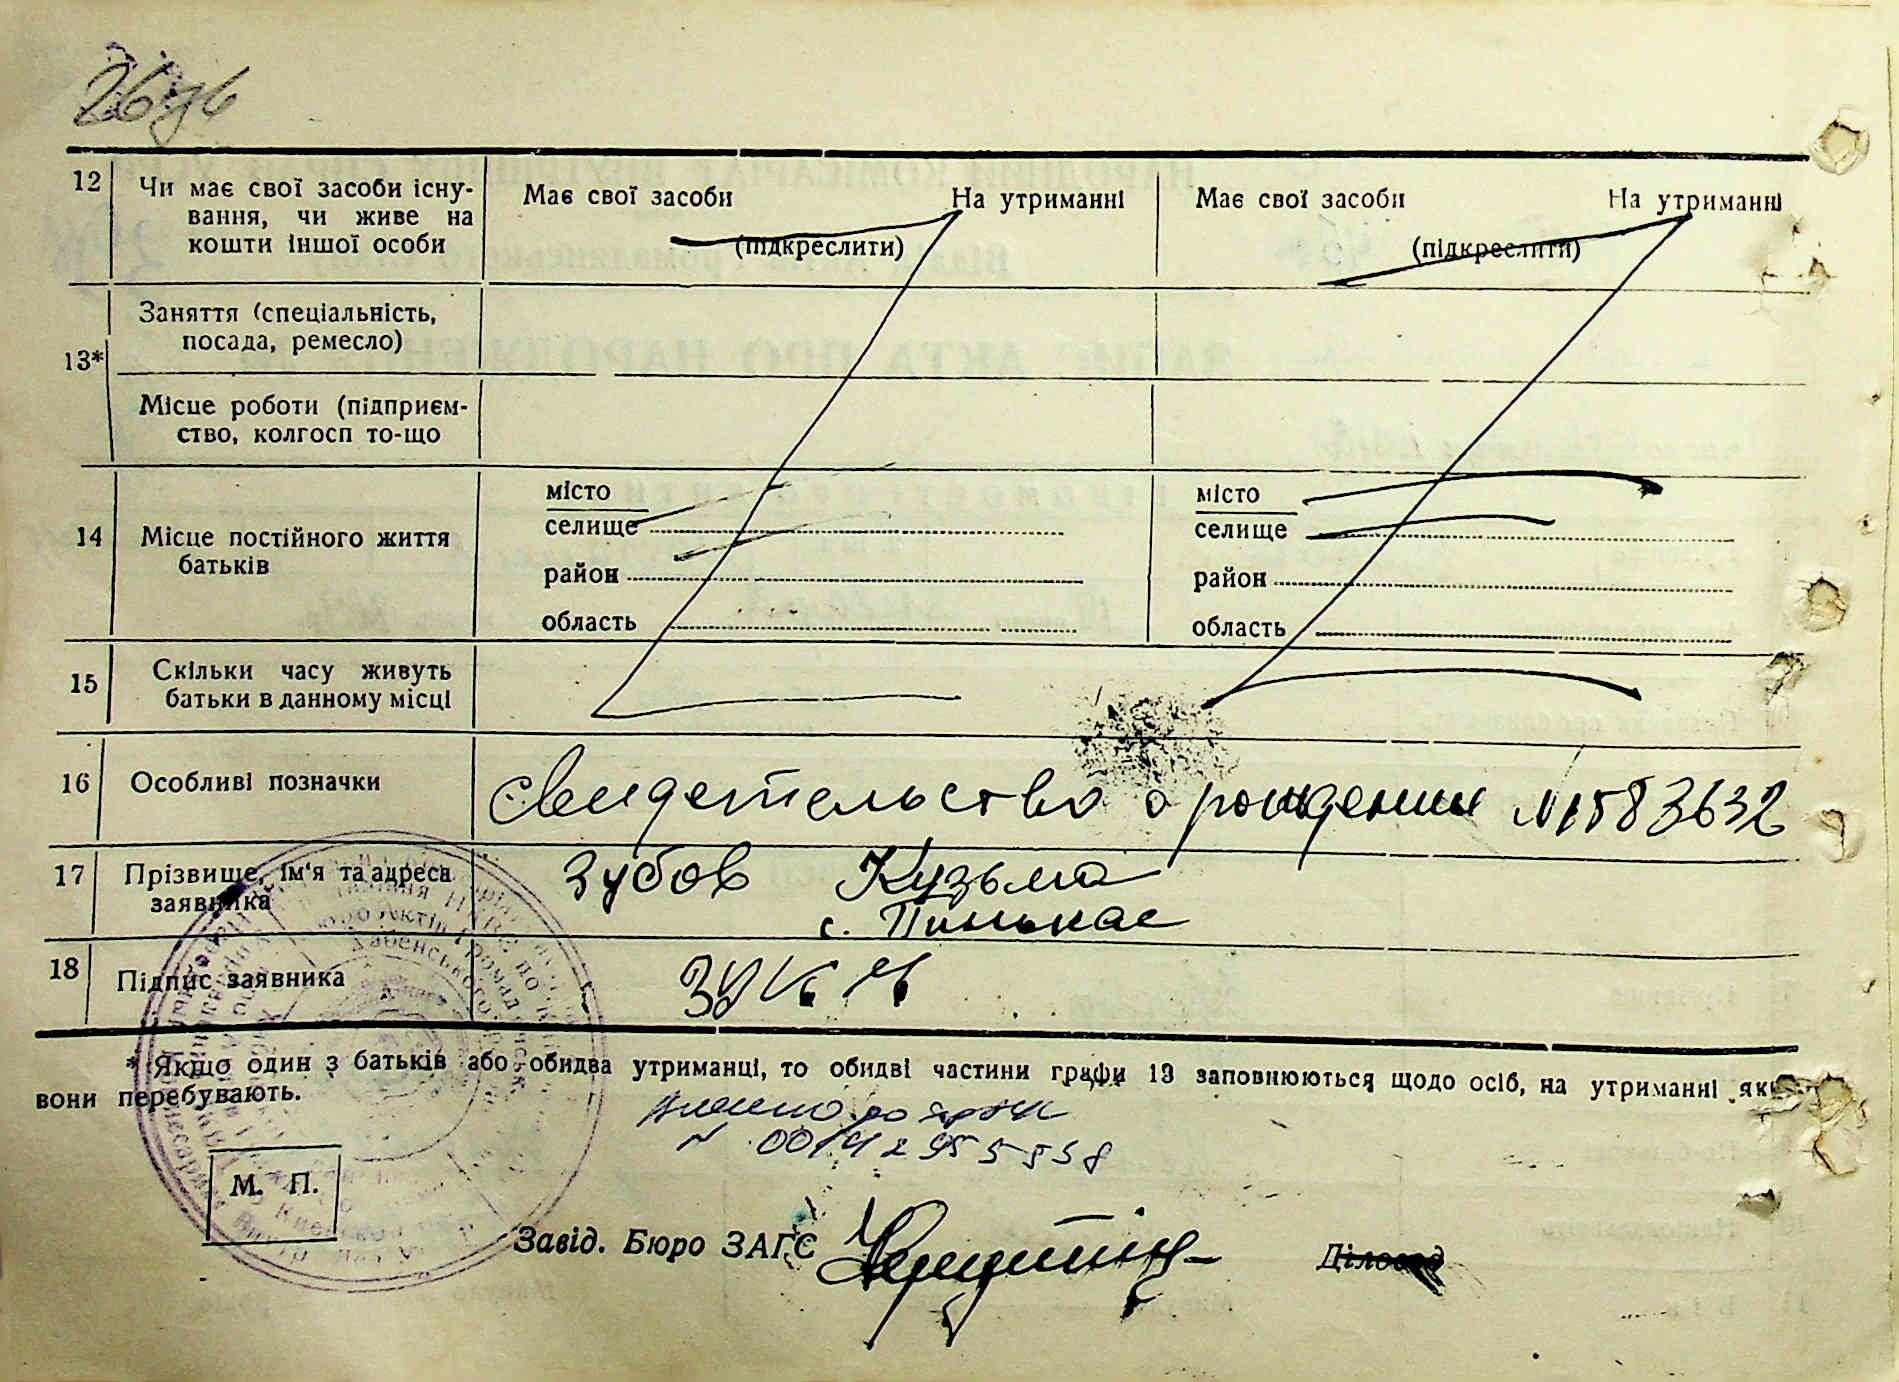 12 Чи має свої засоби існу-
вання, чи живе на
кошти іншої особи
Має свої засоби На утриманні
(підкреслити)
Має свої засоби На утриманні
(підкреслити)
13* Заняття (спеціальність,
посада, ремесло)
Місце роботи (підприєм-
ство, колгосп то-що
14 Місце постійного життя
батьків
місто
селище
район
область
місто
селище
район
область
15 Скільки часу живуть
батьки в данному місці
16 Особливі позначки
Свидетельство о рождении №1583632
17 Прізвище, ім'я та адреса
заявника
Зубов Кузьма
с.
18 Підпис заявника
* Якщо один з батьків або обидва утриманці, то обидві частини графи 13 заповнюються щодо осіб, на утриманні яких
вони перебувають.
М. П.
Завід. Бюро ЗАГС